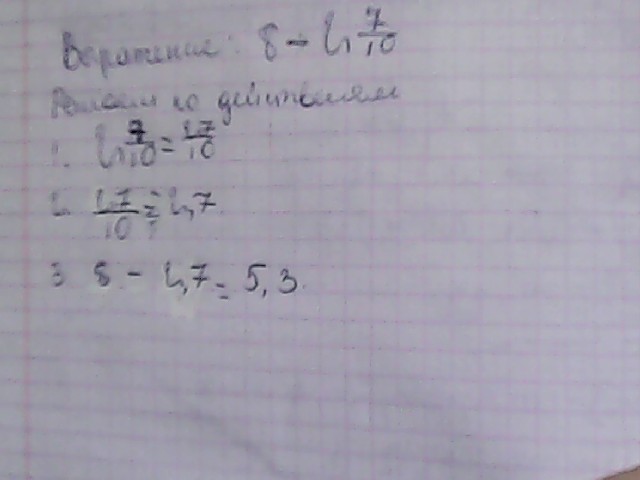 Выражение: 8 - 2 7/10
Решаем по действиям
1. 2 7/10 = 27/10
2. 27/10 = 2,7
3 8 - 2,7 = 5,3